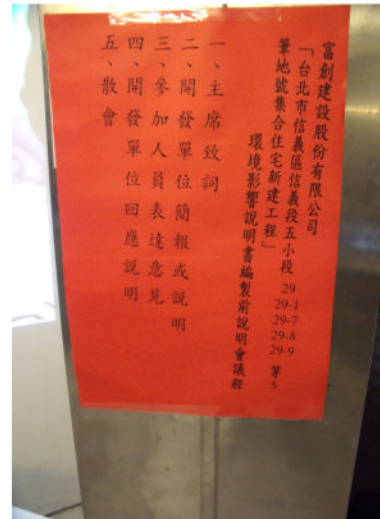 富創建設股份有限公司
「台北市信義區信義段五小段 29 29-1 29-7 29-8 29-9 等 5
筆地號集合住宅新建工程」
環境影響說明書編製前說明會議程
一、主席致詞
二、開發單位簡報或說明
三、參加人員表達意見
四、開發單位回應說明
五、散會